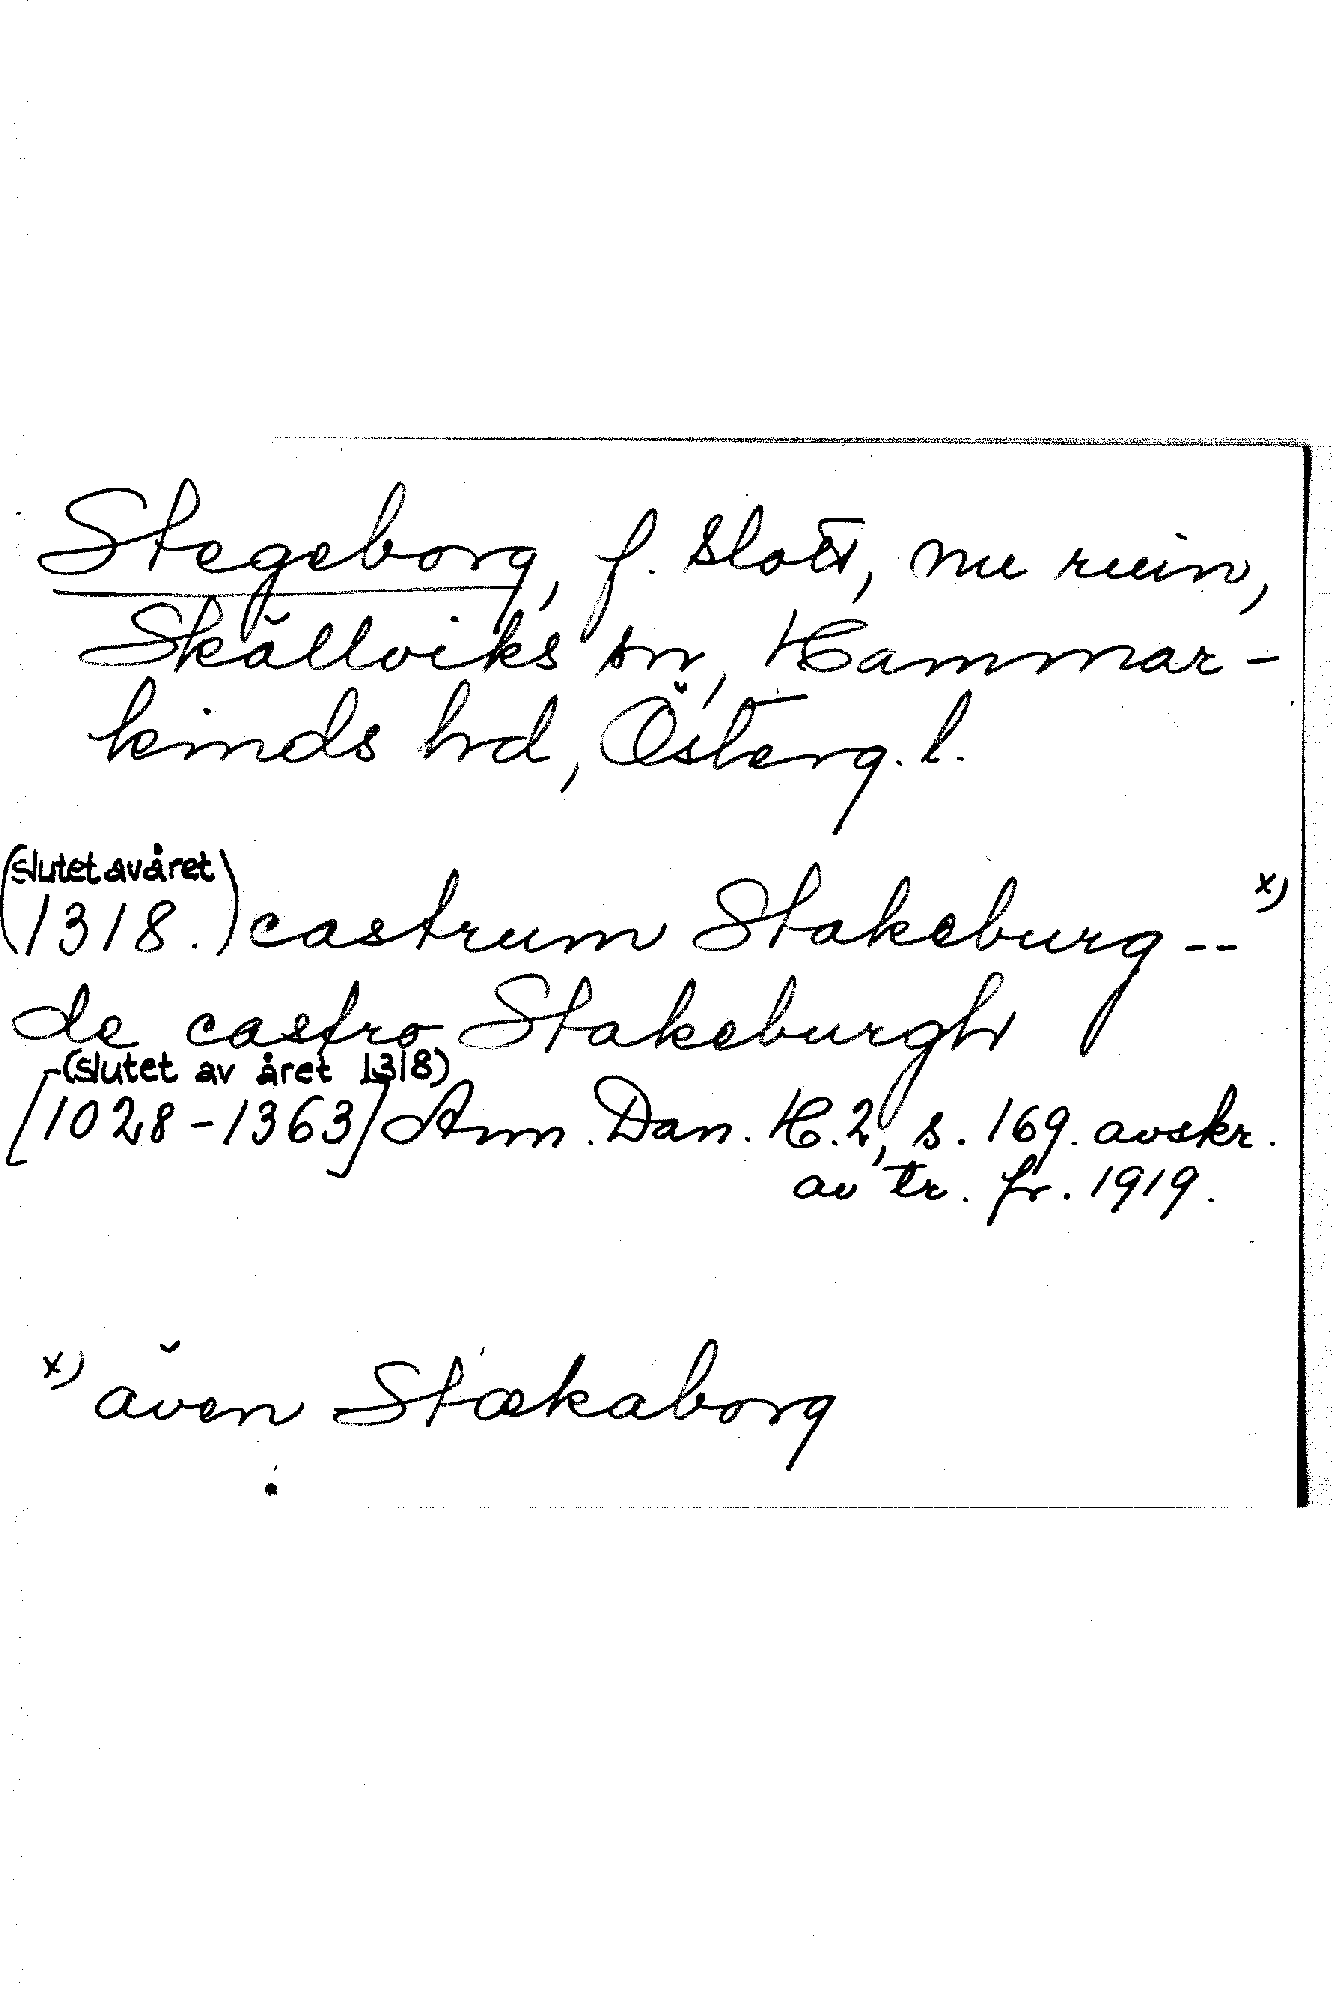 Stegeborg, f. slott, nu ruin,
Skällviks sn, Hammar-
kinds hrd, Österg. l.
(slutet av året)
(1318.) castrum Stakeburg -- x)
de castro Stakeburgh
(slutet av året 1318)
[1028-1363] Ann. Dan. H. 2, s. 169. avskr.
av tr. fr. 1919.
x) även Stækaborg